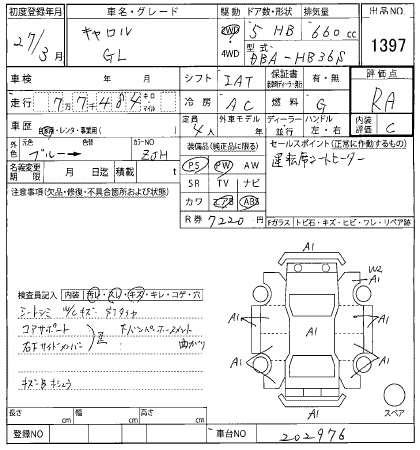 初度登録年月 車名・グレード 駆動 ドア数・形状 排気量 出品NO.
27/3月 キャロル GL 2WD 4WD 5 HB 660 cc 1397
型式 DBA-HB36S
車検 年 月 シフト IAT 保証書 有・無 評価点
走行 7万7千484 キロ マイル 冷房 AC 燃料 G RA
車歴 自家用・レンタ・事業用( ) 定員 4人 外車モデル 年 ディーラー 並行 ハンドル 左・右 内装評価 C
外色 元色 ブルー→ 色替 カラーNO ZJH 装備品(純正品に限る) セールスポイント(正常に作動するもの)
名義変更期限 月 日迄 積載 t PS PW AW 運転席シートヒーター
注意事項(欠品・修復・不具合箇所および状態) SR TV ナビ
カワ エアB ABS
R券 7220円 Fガラス トビ石・キズ・ヒビ・ワレ・リペア跡
検査員記入 内装 汚レ・スレ・キズ・キレ・コゲ・穴
シートシミ キズ
コアサポート Fバンパーホースメント
右Fサイドメンバー 曲がり
キズ・B キショウ
A1
A1 W2
A1 A1 A1
A1 A1
A1
スペア
長さ cm 幅 cm 高さ cm
登録NO 車台NO 202976